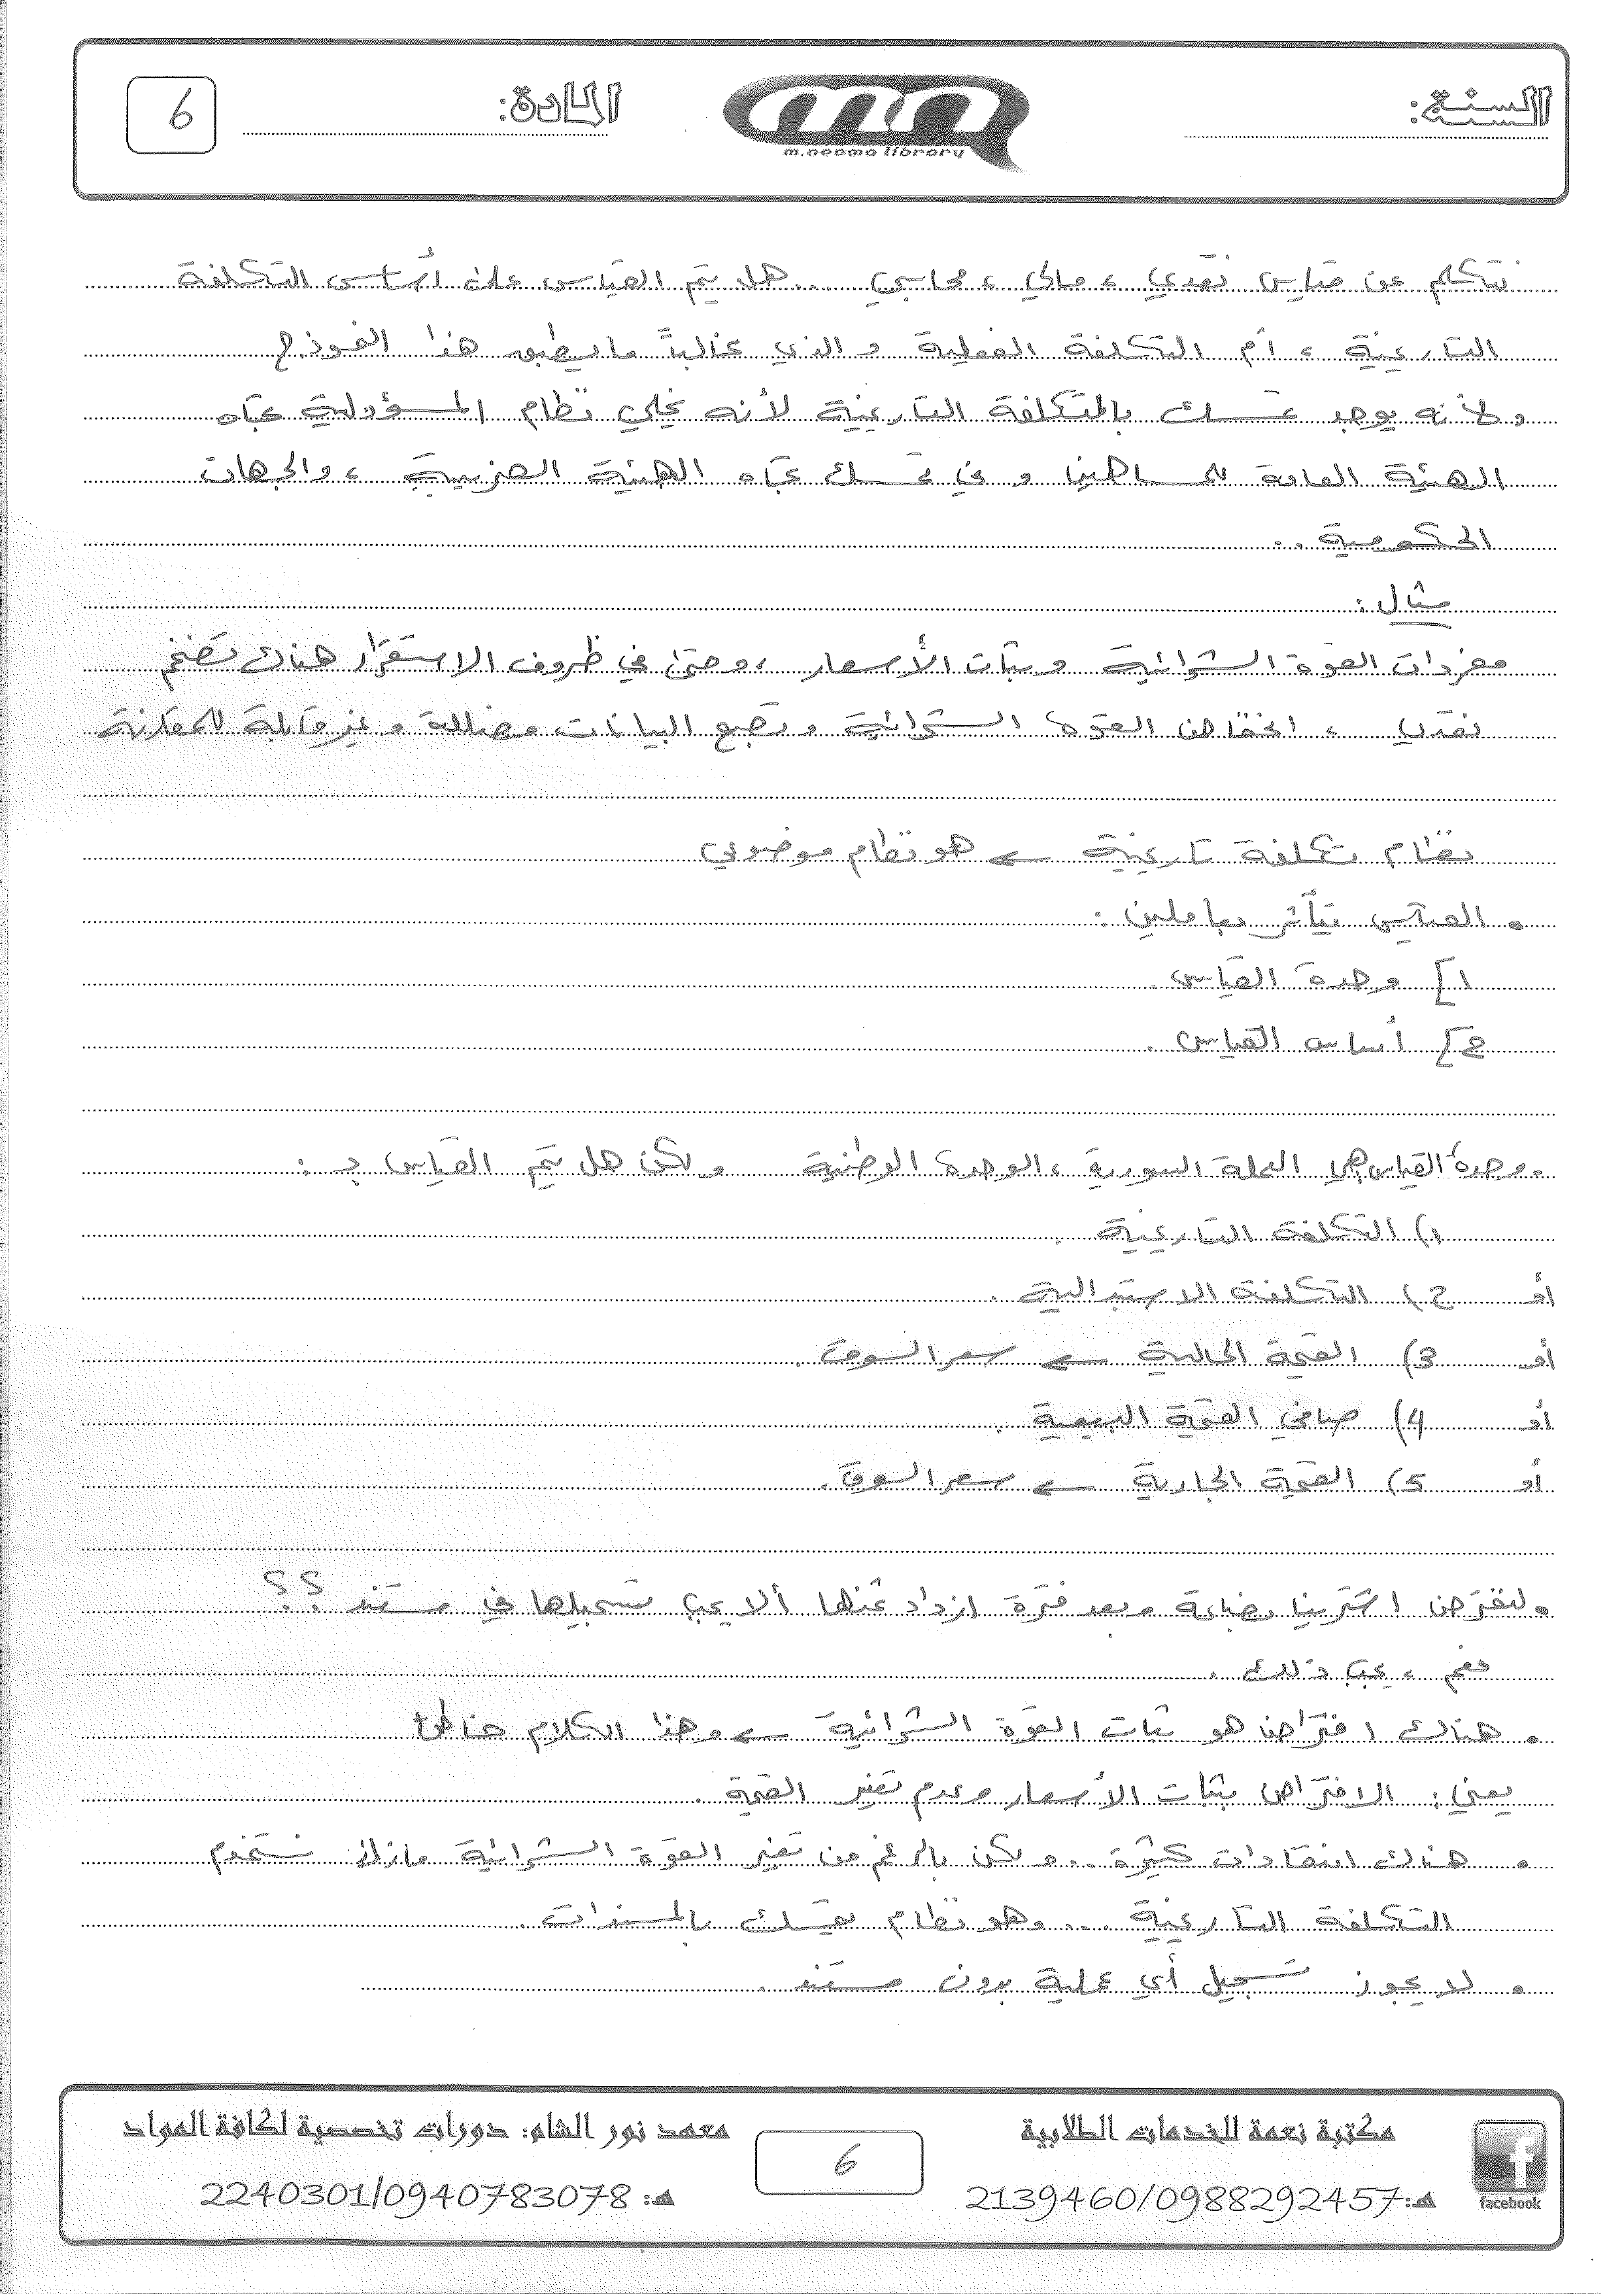 السنة:
m.neama library
المادة:
6
نتكلم عن قياس نقدي ، مالي ، محاسبي ... هل يتم القياس على أساس التكلفة
التاريخية ، أم التكلفة الفعلية و الذي غالباً ما يطبق هذا النموذج
ولأنه يوجد تمسك بالتكلفة التاريخية لأنه يخلي نظام المسؤولية تجاه
الهيئة العامة للمساهمين و في تمسك تجاه الهيئة الضريبية ، والجهات
الحكومية ..
مثال :
مفردات القوة الشرائية وبثبات الأسعار ، وحتى في ظروف الاستقرار هناك تضخم
نقدي ، انخفاض القوة الشرائية و تصبح البيانات مضللة و غير قابلة للمقارنة
نظام تكلفة تاريخية ← هو نظام موضوعي
• القياس يتأثر بعاملين :
1] وحدة القياس .
2] أساس القياس .
• وحدة القياس هي العملة السورية ، الوحدة الوطنية ولكن هل يتم القياس بـ :
1) التكلفة التاريخية .
أو 2) التكلفة الاستبدالية .
أو 3) القيمة الحالية ← سعر السوق .
أو 4) صافي القيمة البيعية .
أو 5) القيمة الجارية ← سعر السوق .
• لنفترض اشترينا بضاعة وبعد فترة ازداد ثمنها ألا يجب تسجيلها في مستند ؟؟
نعم ، يجب ذلك .
• هناك افتراض هو ثبات القوة الشرائية ← وهذا الكلام خاطئ
يعني : الافتراض بثبات الأسعار وعدم تغير القيمة .
• هناك انتقادات كثيرة .. ولكن بالرغم من تغير القوة الشرائية مازلنا نستخدم
التكلفة التاريخية ... وهو نظام يتمسك بالمستندات .
• لا يجوز تسجيل أي عملية بدون مستند .
مكتبة نعمة للخدمات الطلابية
هـ: 2139460/0988292457
facebook
6
معهد نور الشام: دورات تخصصية لكافة المواد
هـ: 2240301/0940783078